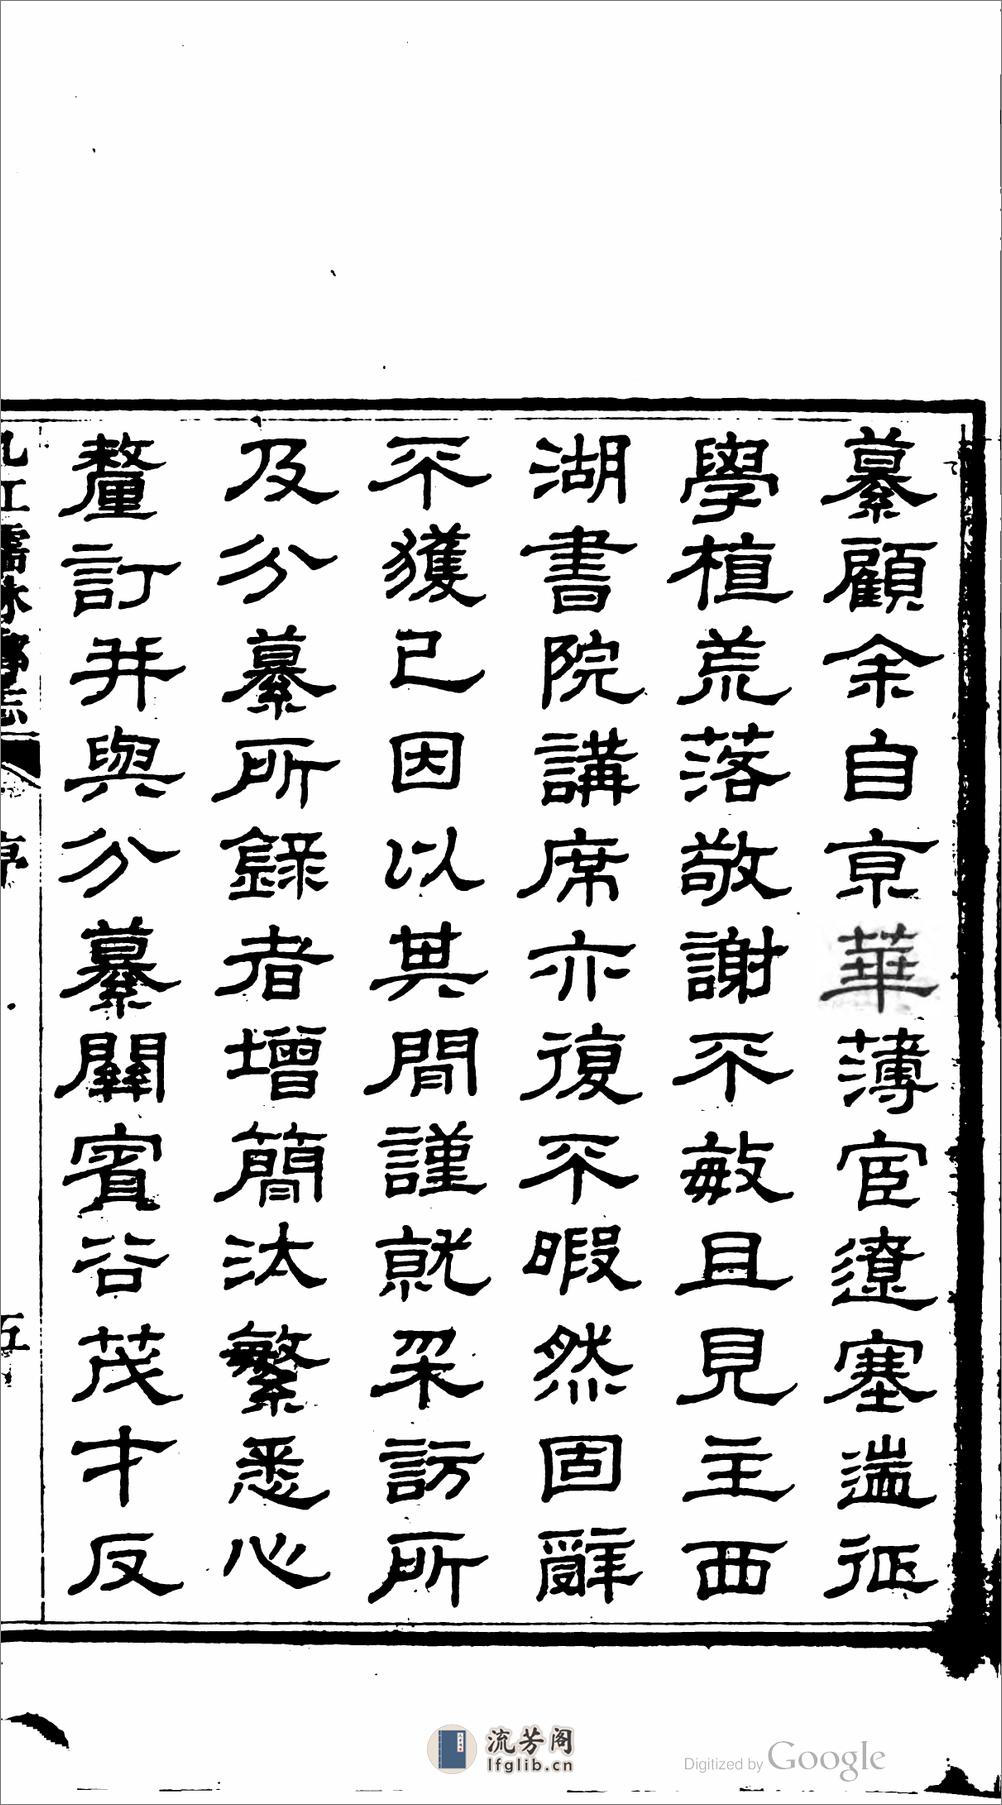 纂顧余自京華薄宦遼塞遄征
學植荒落敬謝不敏且見主西
湖書院講席亦復不暇然固辭
不獲已因以其間謹就采訪所
及分纂所錄者增簡汰繁悉心
釐訂并與分纂關賓谷茂才反
九江儒林鄉志
序
五
流芳阁
lfglib.cn
Digitized by Google